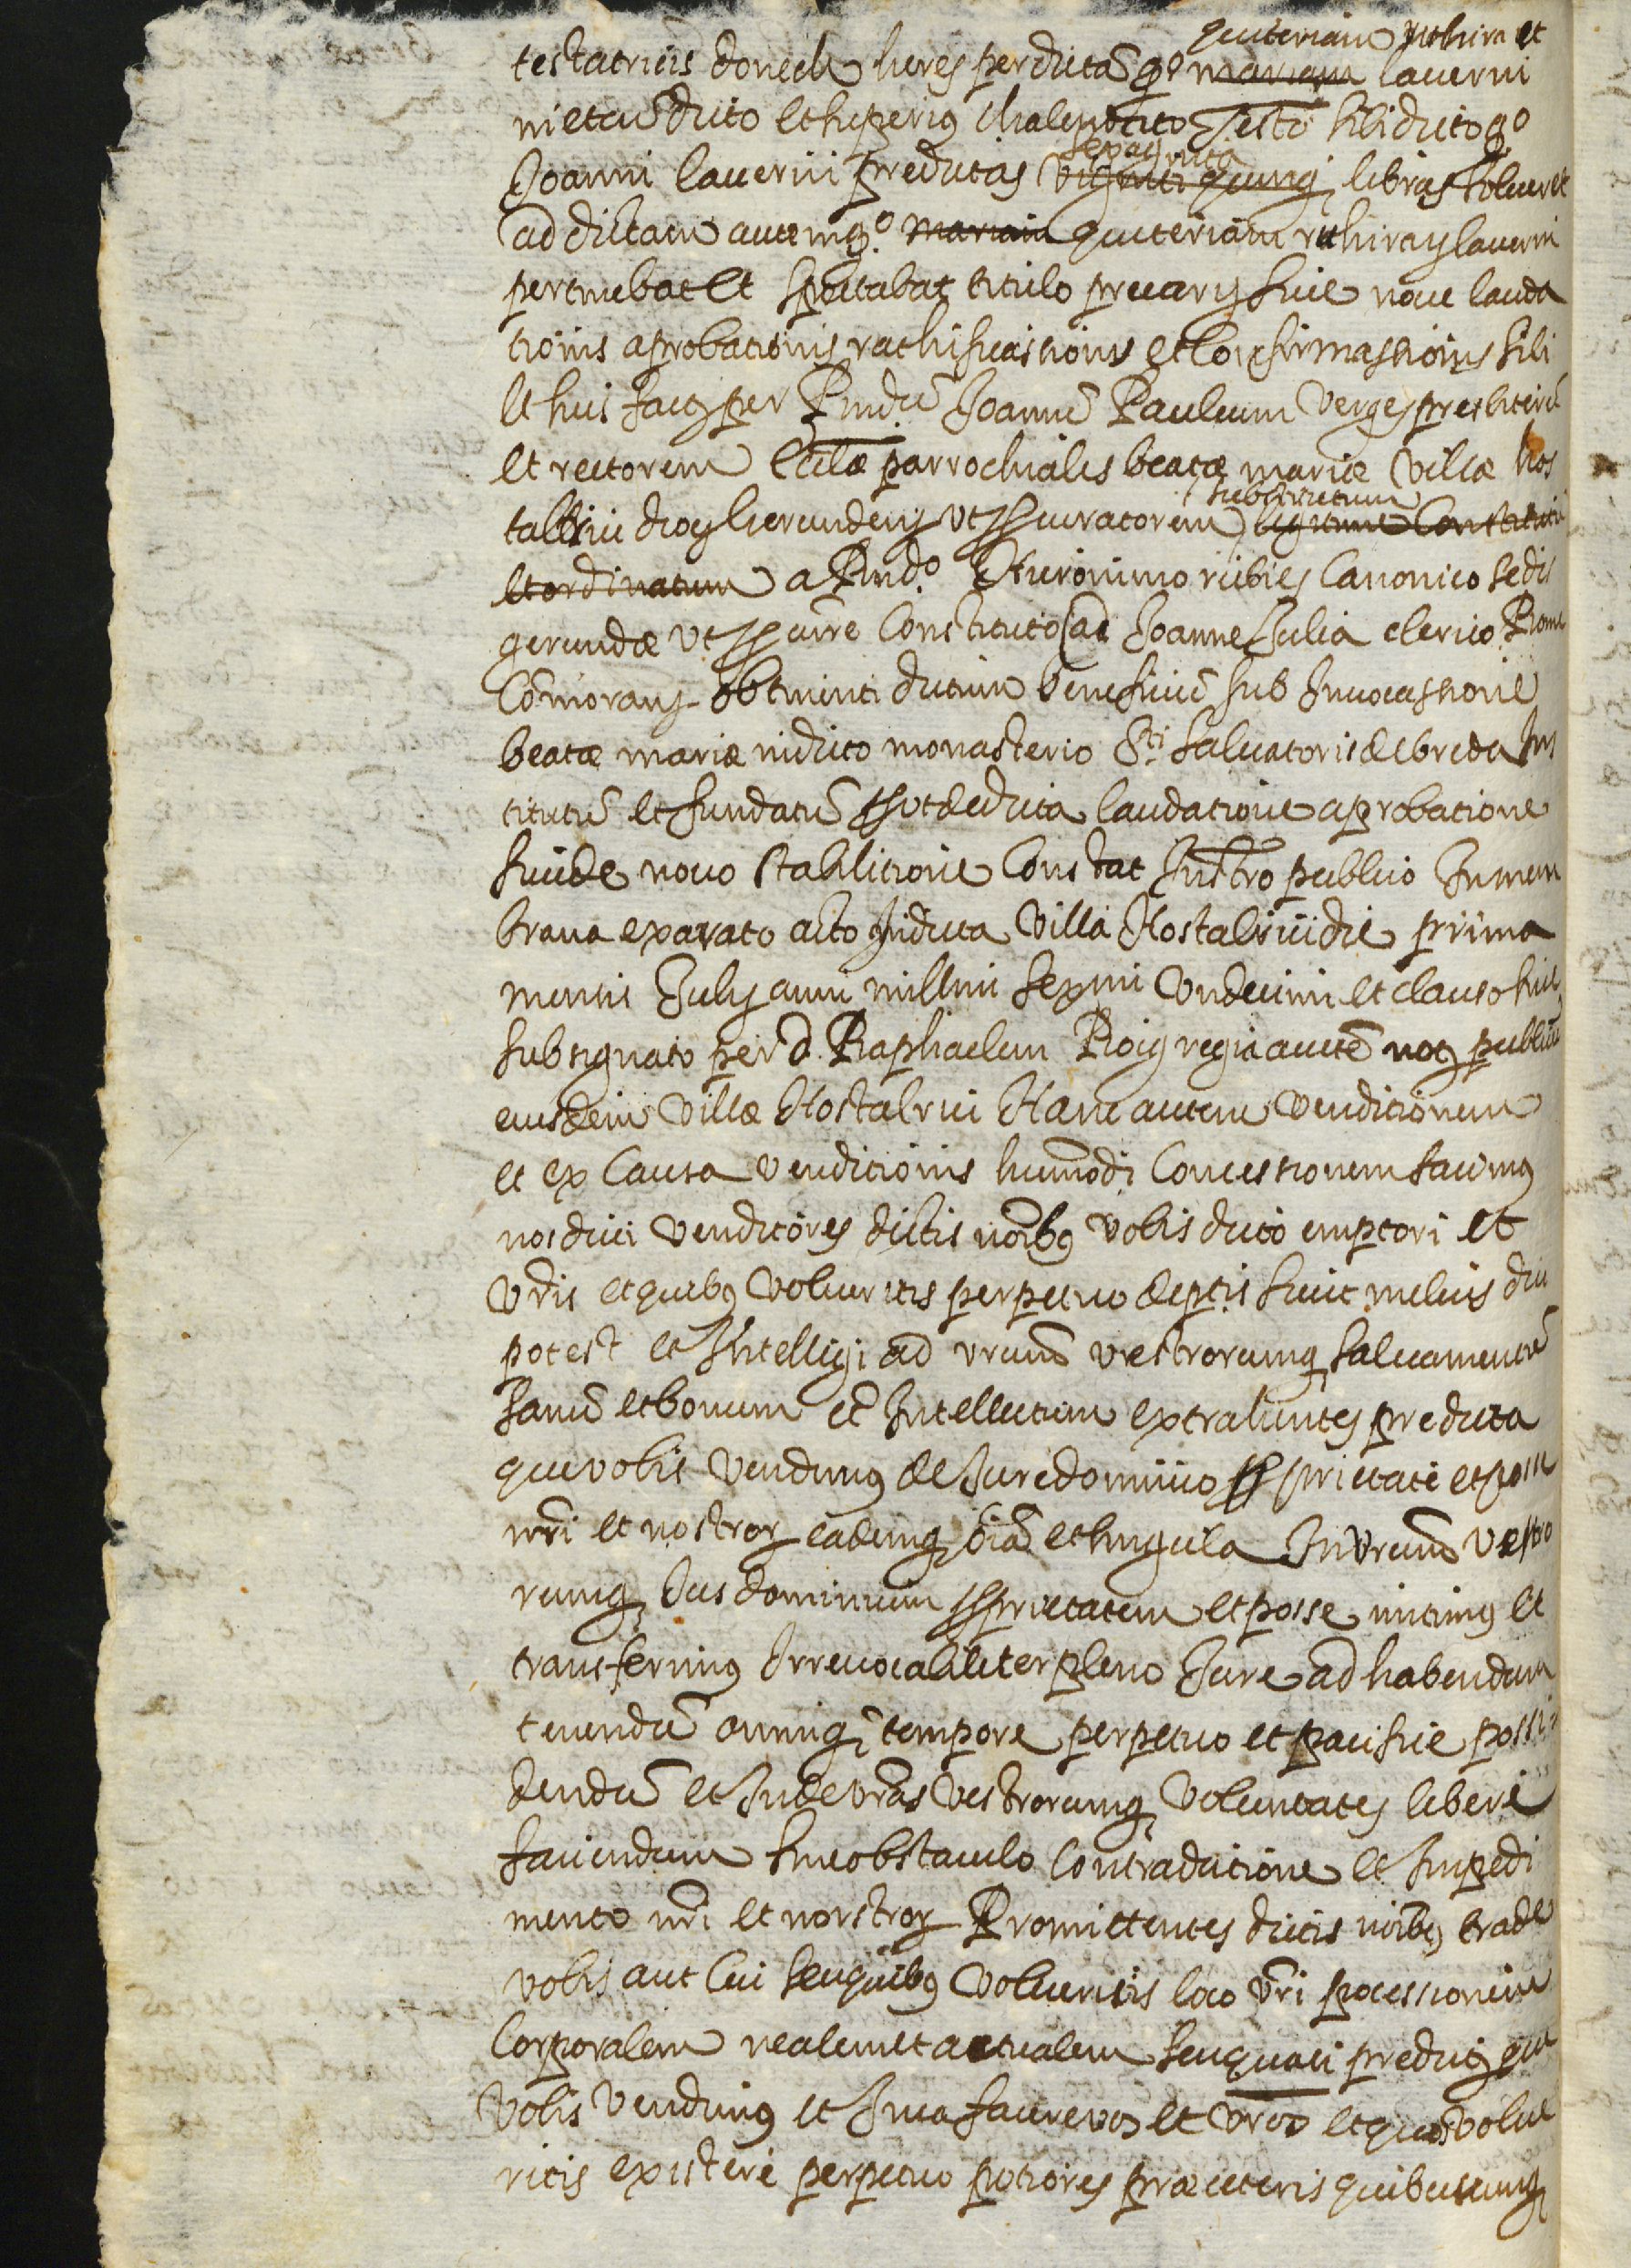 quiteriam ruhira et
testatricis donech heres perdictã qº mariam lauerni
nietaũ dicto et superius chalendato testo sibi dicto qº
sexaginta
Joanni lauerni predictas viginti quinq libras solueret
ad dictam autem qº mariam quiteriam ruhira y lauerni
pertinebat et spectabat titulo precarii siue noue lauda
tionis aprobationis rathificassionis et confirmassionis sibi
et suis factȩ per Rndũ Joannẽ Pauleum verges presbiterũ
et rectorem eccllæ parrochialis beatæ mariæ villæ hos
substitutum
talrici dioȩ Gerundeñ vt procuratorem legitime constitutũ
et ordinatum a Rndº Hieronimo rubies canonico sedis
gerundæ vt procurre constituto ad Joanne Julia clerico Rome
cõmorans obtinenti dictum beneficiũ sub Inuocassione
beatæ mariæ in dicto monasterio Sti saluatoris de breda Ins
titutũ et fundatũ prout de dicta laudatione aprobatione
siue de nouo stablitione constat Instro publico In mem
brana exarato acto In dicta villa Hostalrici die prima
mensis July anni millmi sexmi vndecimi et clauso siue
subsignato per d. Raphaelem Roig regia aucte noȩ publicũ
eiusdem villæ Hostalrici Hanc autem venditionem
et ex causa venditionis huiusmodi concessionem facimus
nos dicti venditores dictis noibus vobis dicto emptori et
vris et quibus volueritis perpetuo de pctis sicut melius dici
potest et Intelligi ad vrum vestrorumq saluamentũ
sanũ et bonum et Intellectum extrahentes predicta
que vobis vendimus de Jure dominio proprietate et posse
nri et nostroȩ eademq oia et singula In vrum vestro
rumq Jus dominium proprietatem et posse mitimus et
transferimus Irreuocabiliter pleno Jure ad habendum
tenendũ omniq tempore perpetuo et pacifice possi
dendũ et Inde vras vestrorumq voluntates liberé
faciendum sine obstaculo contradictione et Impedi
mento nri et nostroȩ Promittentes dictis noibus trade
vobis aut cui seu quibus volueritis loco vri pocessionem
corporalem realem et actualem seu quasi predictoȩ que
vobis vendimus et In ea facere vos et vros et quos volue
ritis existere perpetuo potiores præ ceteris quibuscunq